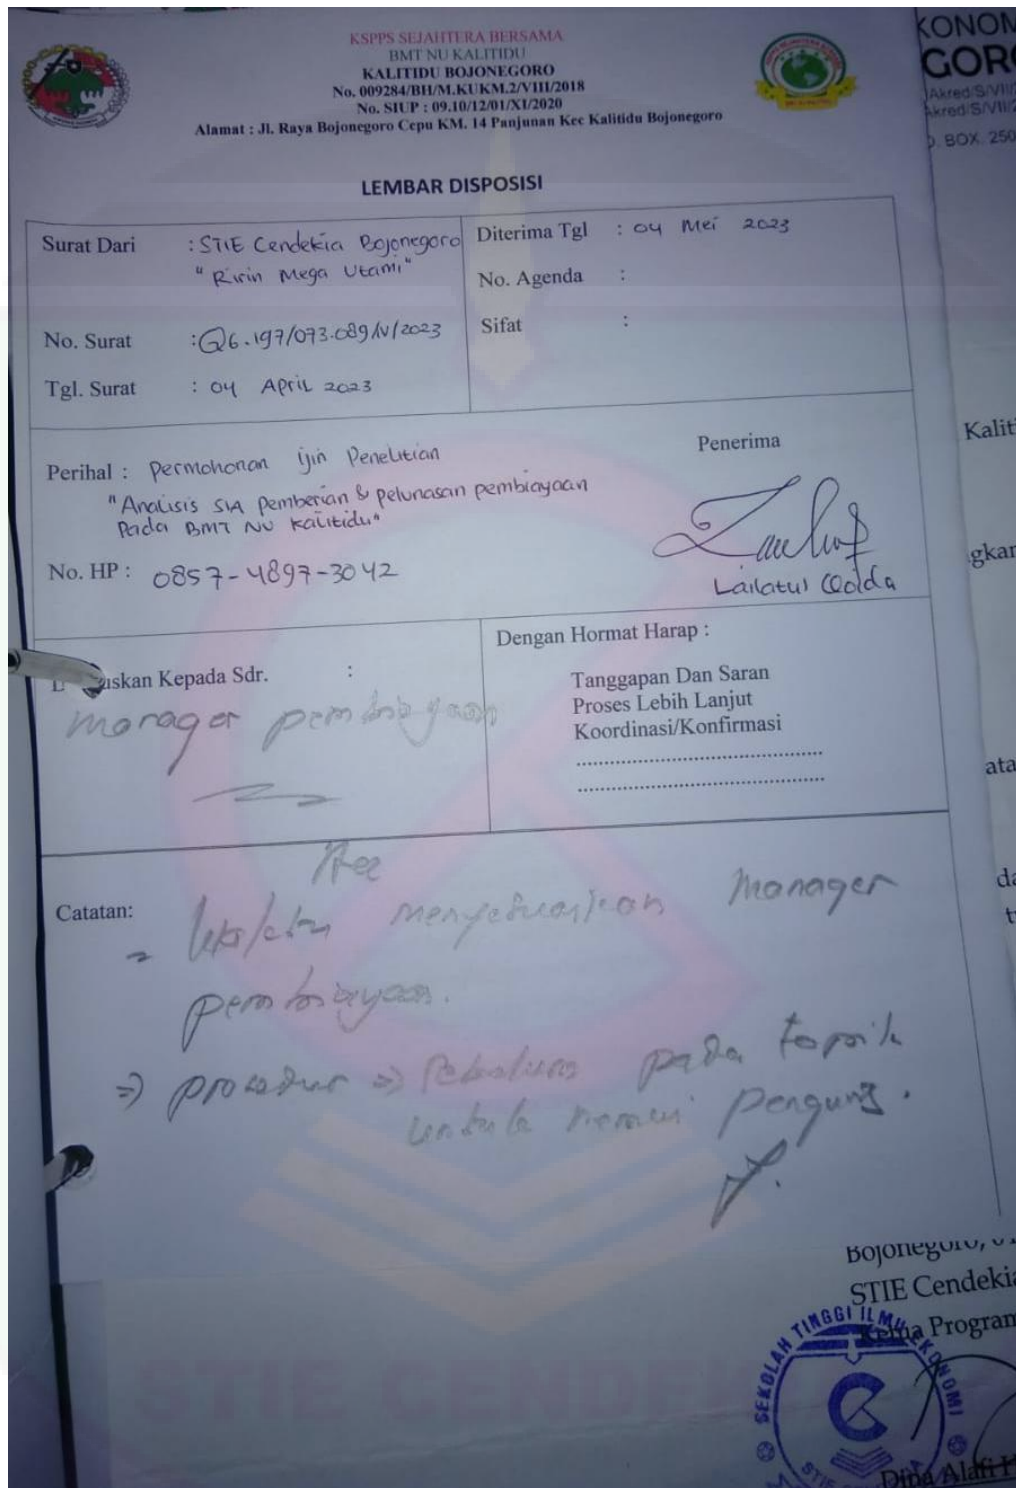 KSPPS SEJAHTERA BERSAMA
BMT NU KALITIDU
KALITIDU BOJONEGORO
No. 009284/BH/M.KUKM.2/VIII/2018
No. SIUP : 09.10/12/01/XI/2020
Alamat : Jl. Raya Bojonegoro Cepu KM. 14 Panjunan Kec Kalitidu Bojonegoro
KONOM
GORO
Akred/S/VII/
Akred/S/VII/
BOX. 250
LEMBAR DISPOSISI
Surat Dari : STIE Cendekia Bojonegoro
"Ririn Mega Utami"
No. Surat : Q6.197/073.089/IV/2023
Tgl. Surat : 04 April 2023
Diterima Tgl : 04 Mei 2023
No. Agenda :
Sifat :
Perihal : Permohonan ijin Penelitian
"Analisis SIA Pemberian & pelunasan pembiayaan
Pada BMT NU Kalitidu"
No. HP : 0857-4897-3042
Penerima
Lailatul
Kaliti
gkan
uskan Kepada Sdr. :
manager pembiayaan
Dengan Hormat Harap :
Tanggapan Dan Saran
Proses Lebih Lanjut
Koordinasi/Konfirmasi
ata
Acc
Catatan:
menyesuaikan Manager
pembiayaan.
=> prosedur => pada topik
untuk
da
Bojonegoro,
STIE Cendekia
Ketua Program
SEKOLAH TINGGI ILMU EKONOMI
Dina Alafi
STIE CENDEKIA